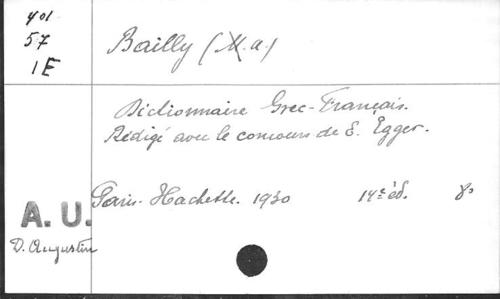 401
57
1E
Bailly (M.A.)
Dictionnaire Grec-Français.
Rédigé avec le concours de E. Egger.
Paris. Hachette. 1930 14e éd. 8o
A. U.
D. Augustin